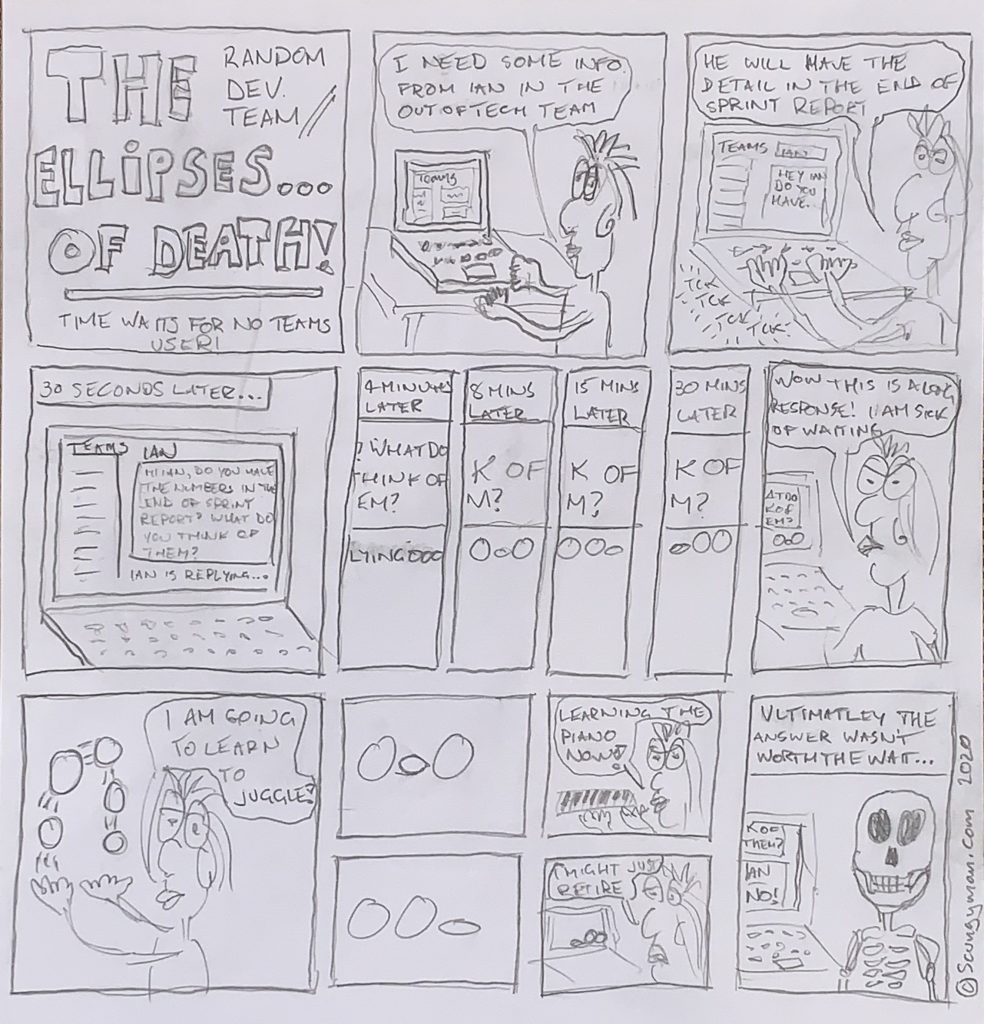 THE
RANDOM
DEV.
TEAM
ELLIPSES...
OF DEATH!
TIME WAITS FOR NO TEAMS
USER!
I NEED SOME INFO
FROM IAN IN THE
OUTOFTECH TEAM
TEAMS
HE WILL HAVE THE
DETAIL IN THE END OF
SPRINT REPORT
TEAMS IAN
HEY IAN
DO YOU
HAVE...
TCK
TCK
TCK
TCK
30 SECONDS LATER...
TEAMS IAN
HI IAN, DO YOU HAVE
THE NUMBERS IN THE
END OF SPRINT
REPORT? WHAT DO
YOU THINK OF
THEM?
IAN IS REPLYING...
4 MINUTES
LATER
? WHAT DO
THINK OF
EM?
LYING...
8 MINS
LATER
K OF
M?
15 MINS
LATER
K OF
M?
30 MINS
LATER
K OF
M?
WOW THIS IS A LONG
RESPONSE! I AM SICK
OF WAITING
K OF
EM?
I AM GOING
TO LEARN
TO
JUGGLE!
LEARNING THE
PIANO
NOW!
I MIGHT JUST
RETIRE
ULTIMATLEY THE
ANSWER WASN'T
WORTH THE WAIT...
K OF
THEM?
IAN
NO!
©Scungyman.com 2020